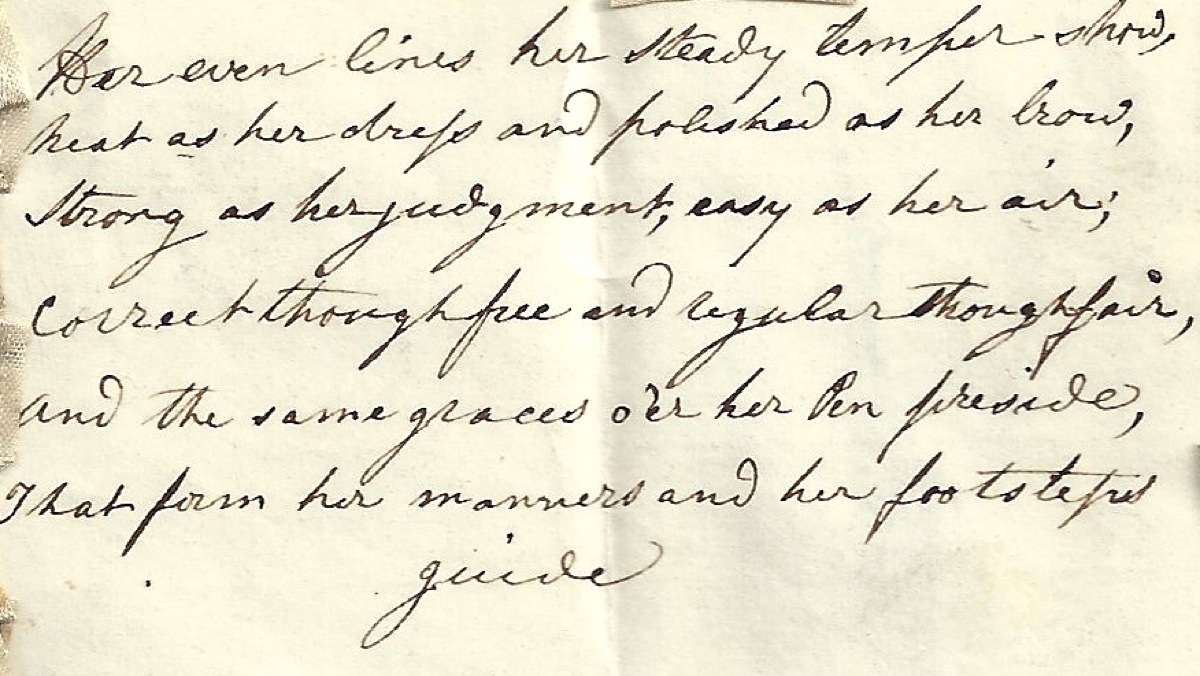 Her even lines her steady temper show,
neat as her dress and polished as her brow,
Strong as her judgment, easy as her air;
Correct though free and regular though fair,
and the same graces o'er her Pen preside,
That form her manners and her footsteps
guide